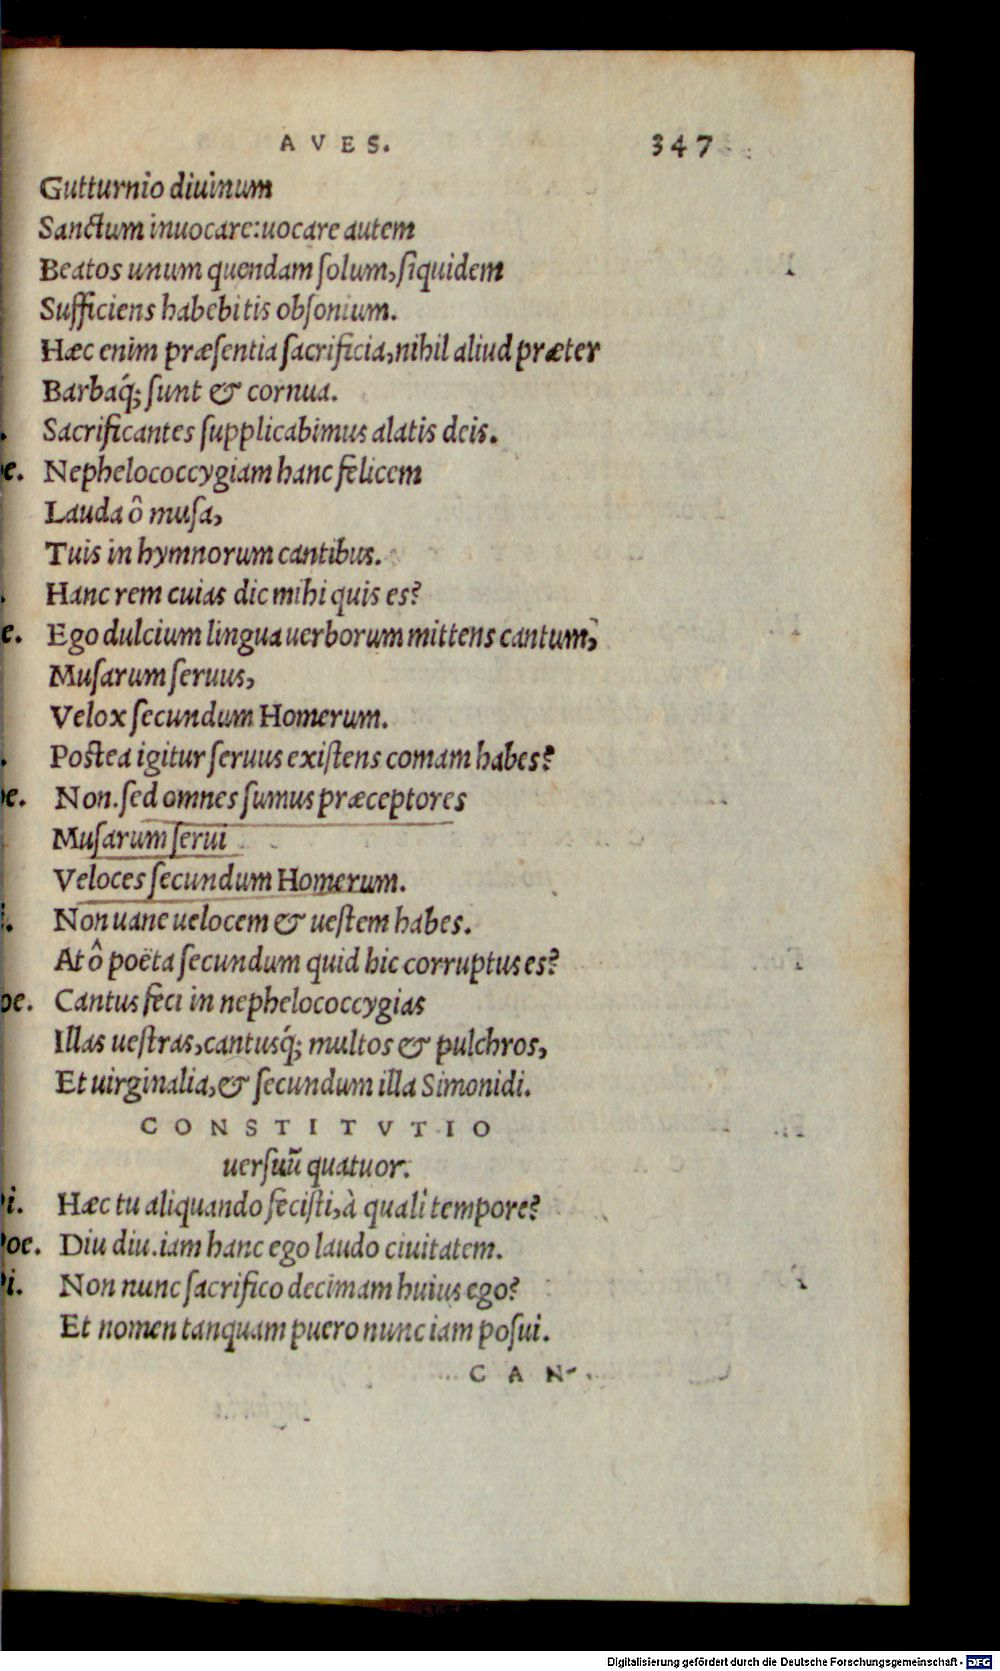 AVES. 347
Gutturnio diuinum
Sanctum inuocare:uocare autem
Beatos unum quendam ſolum,ſiquidem
Sufficiens habebitis obſonium.
Hæc enim præſentia ſacrificia,nihil aliud præter
Barbaq́; ſunt & cornua.
Sacrificantes ſupplicabimus alatis deis.
e. Nephelococcygiam hanc felicem
Lauda ô muſa,
Tuis in hymnorum cantibus.
Hanc rem cuias dic mihi quis es?
e. Ego dulcium lingua uerborum mittens cantum,
Muſarum ſeruus,
Velox ſecundum Homerum.
Postea igitur ſeruus exiſtens comam habes?
oe. Non.ſed omnes ſumus præceptores
Muſarum ſerui
Veloces ſecundum Homerum.
i. Non uane uelocem & ueſtem habes.
At ô poëta ſecundum quid hic corruptus es?
oe. Cantus feci in nephelococcygias
Illas ueſtras,cantusq́; multos & pulchros,
Et uirginalia,& ſecundum illa Simonidi.
CONSTITVTIO
uerſuū quatuor.
Pi. Hæc tu aliquando feciſti,à quali tempore?
Poe. Diu diu.iam hanc ego laudo ciuitatem.
Pi. Non nunc ſacrifico decimam huius ego?
Et nomen tanquam puero nunc iam poſui.
CAN-
Digitalisierung gefördert durch die Deutsche Forschungsgemeinschaft - DFG